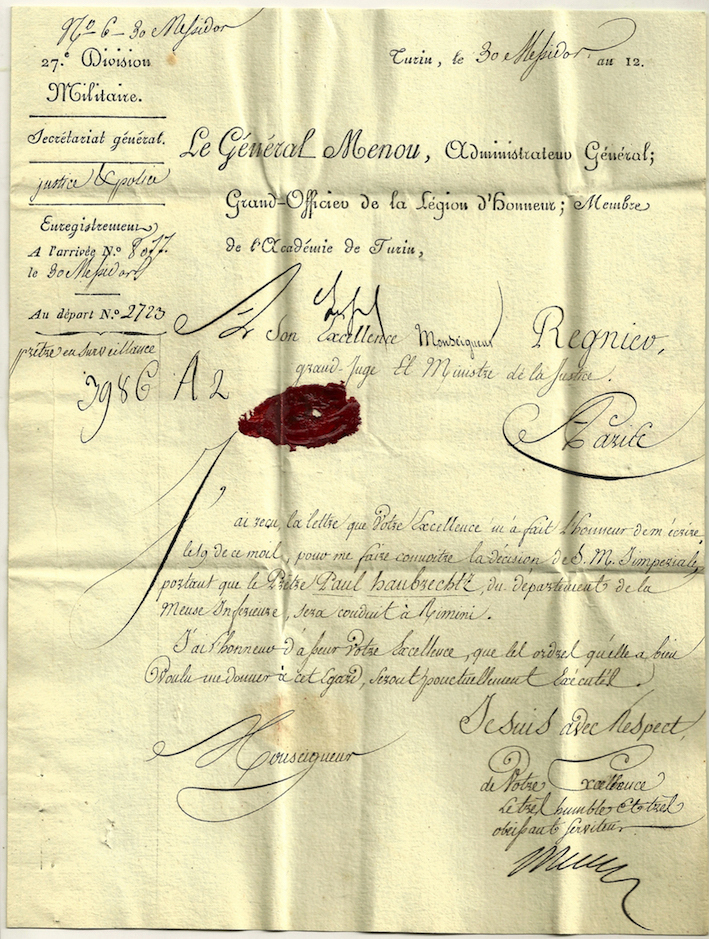 Nº 6 - 30 Messidor
27.e Division
Militaire.
Secrétariat général.
justice & police
Enregistrement
A l'arrivée N.º 8077
le 30 Messidor
Au départ N.º 2723
prêtre en surveillance
3986 A 2
Turin, le 30 Messidor an 12.
Le Général Menou, Administrateur Général;
Grand-Officier de la Légion d'Honneur; Membre
de l'Académie de Turin,
A Son Excellence Monseigneur Regnier,
grand-Juge Et Ministre de la Justice.
A Paris
J'ai reçu la lettre que Votre Excellence m'a fait l'honneur de m'écrire,
le 19 de ce mois, pour me faire connoitre la décision de S. M. Impériale,
portant que le Prêtre Paul haubrechtz, du département de la
Meuse Inférieure, sera conduit à Rimini.
J'ai l'honneur d'asseur Votre Excellence, que les ordres qu'elle a bien
Voulu me donner à cet Egard, seront ponctuellement Exécutés.
Je suis avec Respect,
Monseigneur
de Votre Excellence
Le très humble et très
obéissant serviteur.
Menou